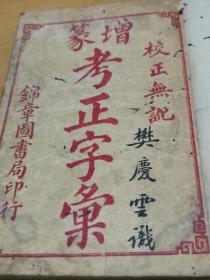 校正無訛
樊慶雲識
增篆
考正字彙
錦章圖書局印行